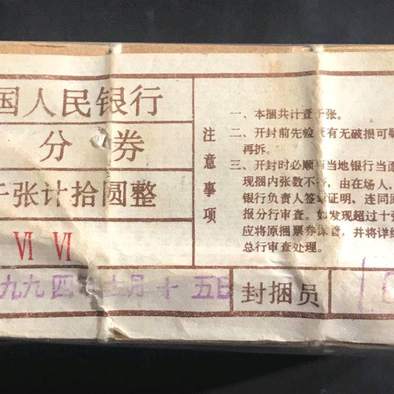 国人民银行
分券
千张计拾圆整
VI VI
九九四年十月十五日
封捆员
注意事项
一、本捆共计壹千张。
二、开封前先检查有无破损可疑
再拆。
三、开封时必须有当地银行当面
现捆内张数不符，由在场人、
银行负责人签章证明，连同原
报分行审查。如发现超过十张
应将原捆票券保管，并将详细
总行审查处理。